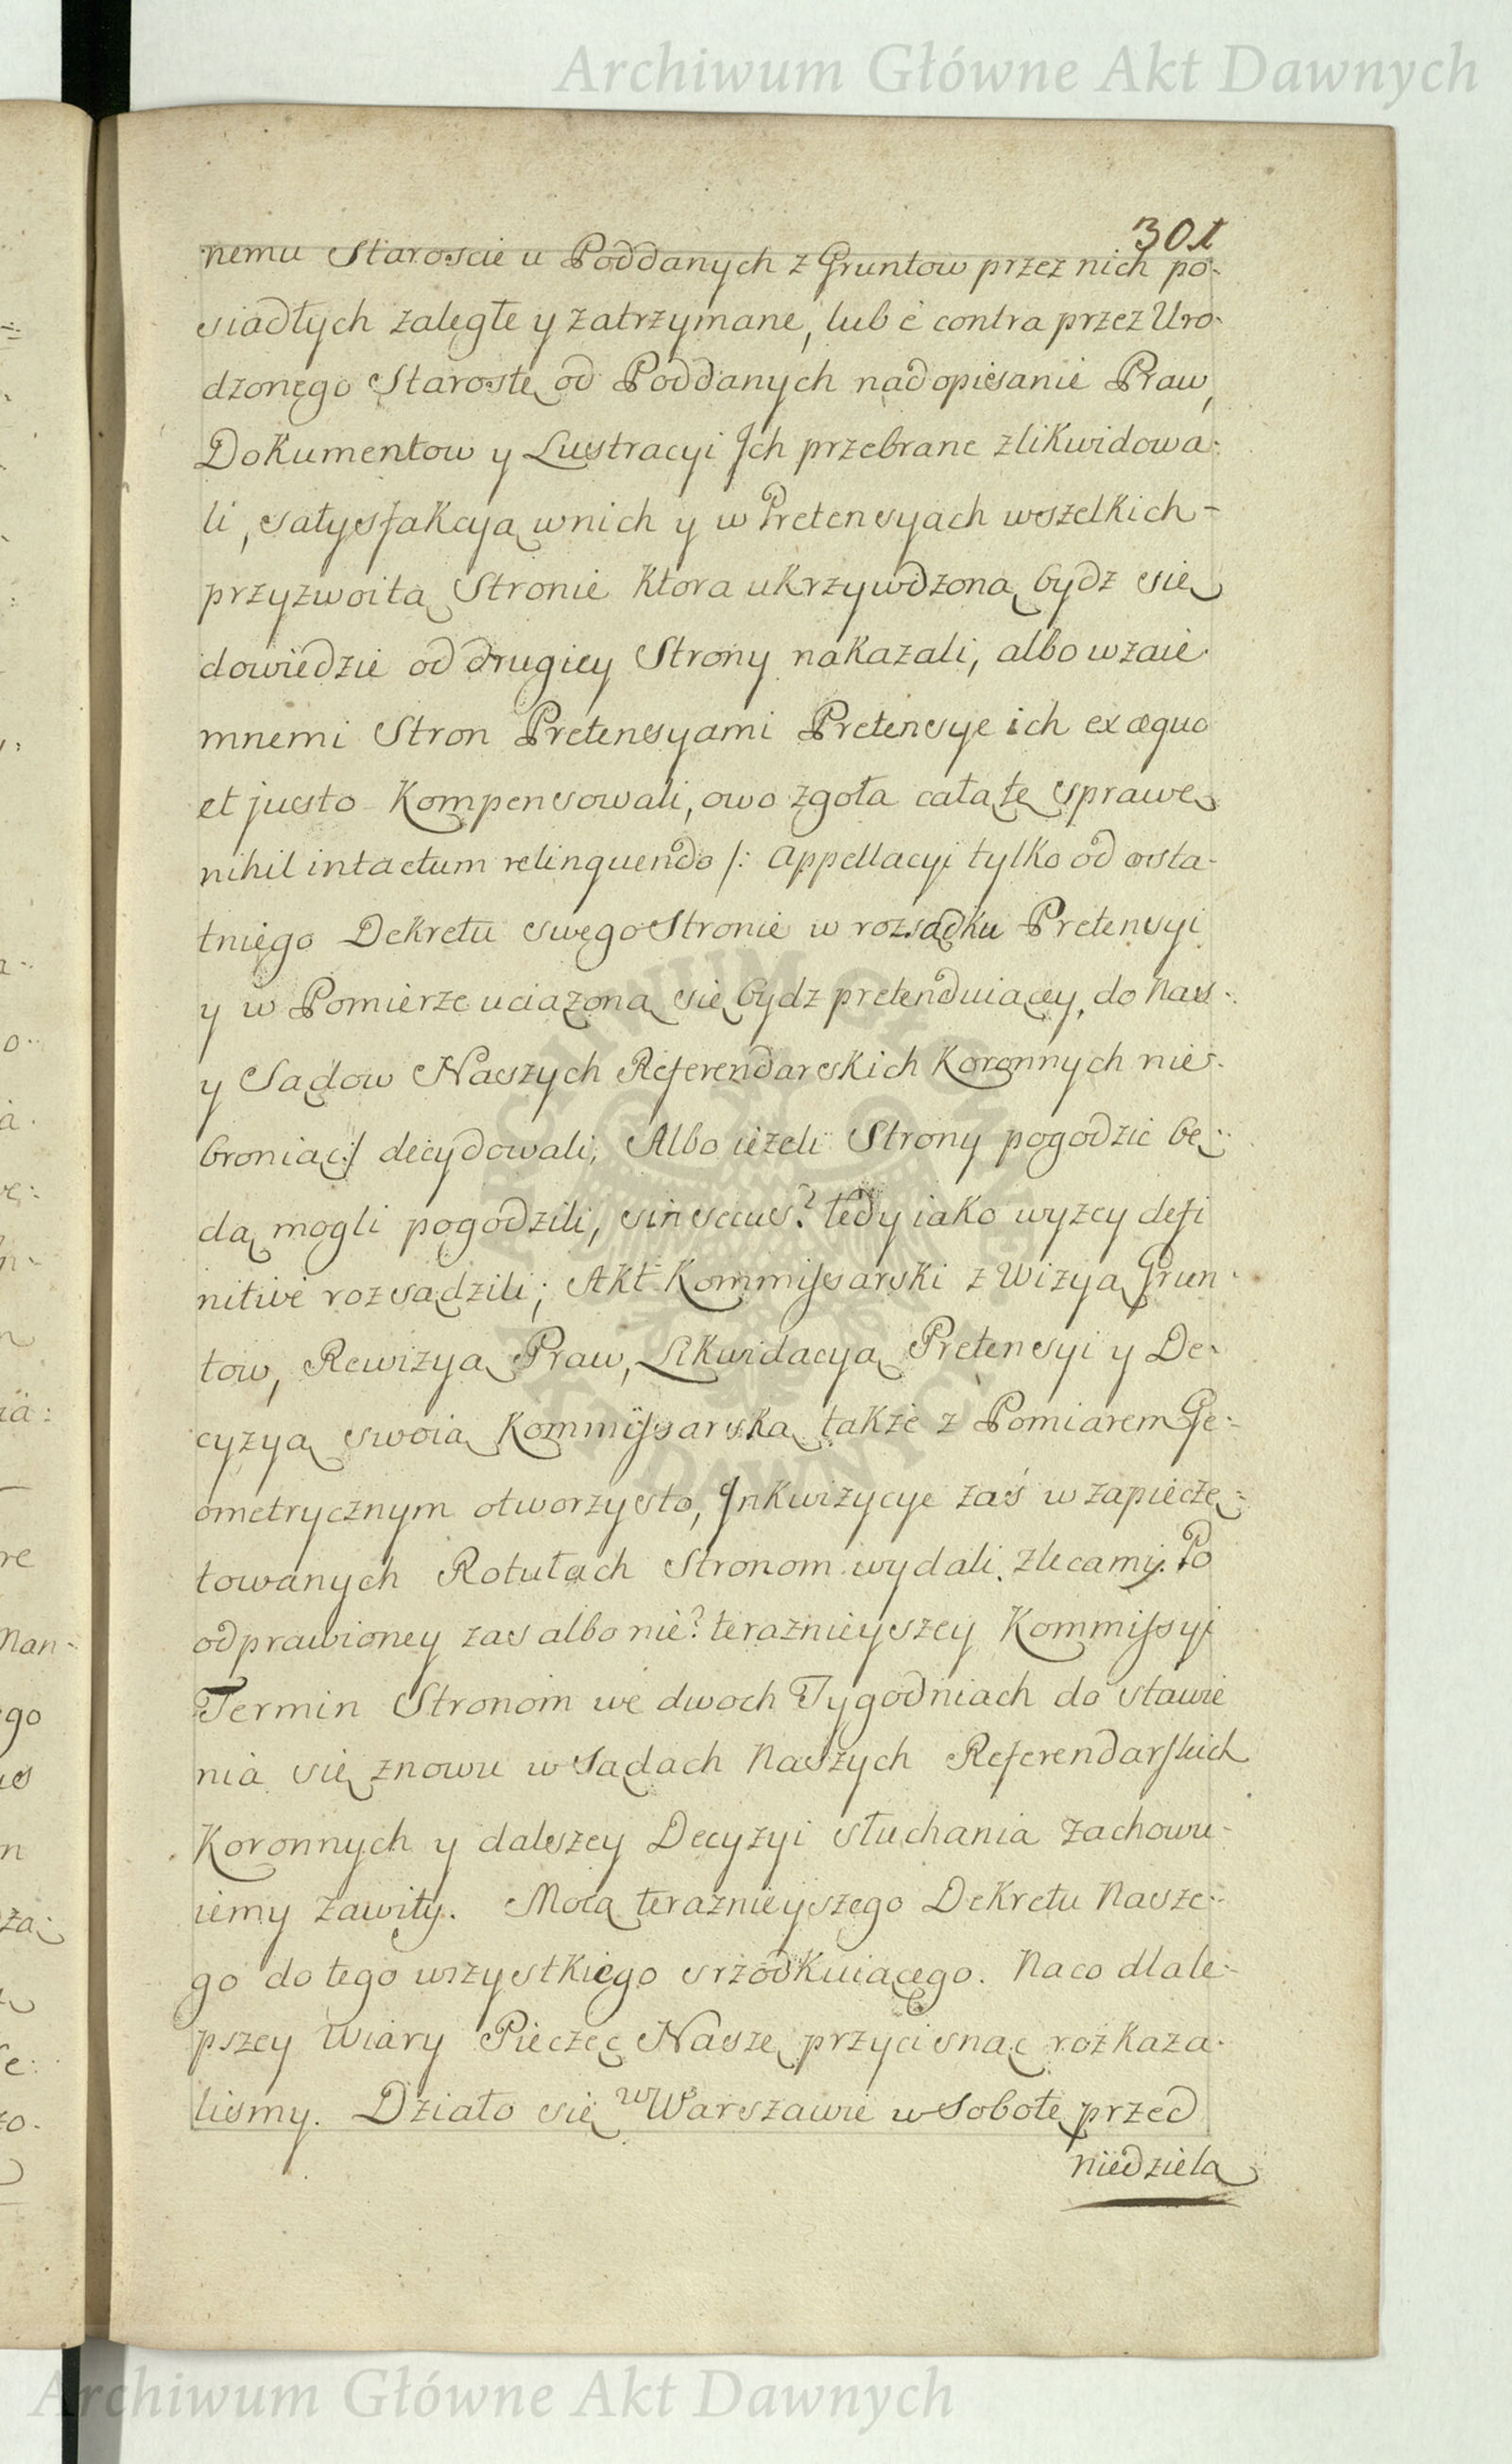 Archiwum Główne Akt Dawnych
301
nemu Staroscie u Poddanych z Gruntow przez nich po-
siadłych zaległe y zatrzymane, lub è contra przez Uro-
dzonego Starostę od Poddanych nad opisanie Praw,
Dokumentow y Lustracyi Ich przebrane zlikwidowa-
li, satysfakcyą wnich y w Pretensyach wszelkich-
przyzwoitą Stronie ktora ukrzywdzoną bydz się
dowiedzie od drugiey Strony nakazali, albo wzaie-
mnemi Stron Pretensyami Pretensye ich ex æquo
et justo Kompensowali, owo zgoła całą tę sprawę
nihil intactum relinquendo /: Appellacyi tylko od osta-
tniego Dekretu swego Stronie w rozsądku Pretensyi
y w Pomierze uciążoną się bydz pretenduiącey, do Nas-
y Sądow Naszych Referendarskich Koronnych nie-
broniąc:/ decydowali; Albo ieżeli Strony pogodzic bę-
dą mogli pogodzili, sin secus? tedy iako wyzey defi
nitive rozsądzili; Akt Kommissarski z Wizyą Grun-
tow, Rewizyą Praw, Likwidacyą Pretensyi y De-
cyzyą swoią Kommissarską także z Pomiarem Ge-
ometrycznym otworzysto, Inkwizycye zaś w zapieczę-
towanych Rotułach Stronom wydali. Zlecamy. Po
odprawioney zas albo nie? teraznieyszey Kommissyi
Termin Stronom we dwoch Tygodniach do stawie
nia się znowu w Sądach Naszych Referendarskich
Koronnych y dalszey Decyzyi słuchania zachowu-
iemy zawity. Mocą teraznieyszego Dekretu Nasze-
go do tego wszystkiego srzodkuiącego. Na co dla le-
pszey Wiary Pieczęc Naszę przycisnąc rozkaza-
lismy. Działo się w Warszawie w Sobotę przed
niedzielą
Archiwum Główne Akt Dawnych